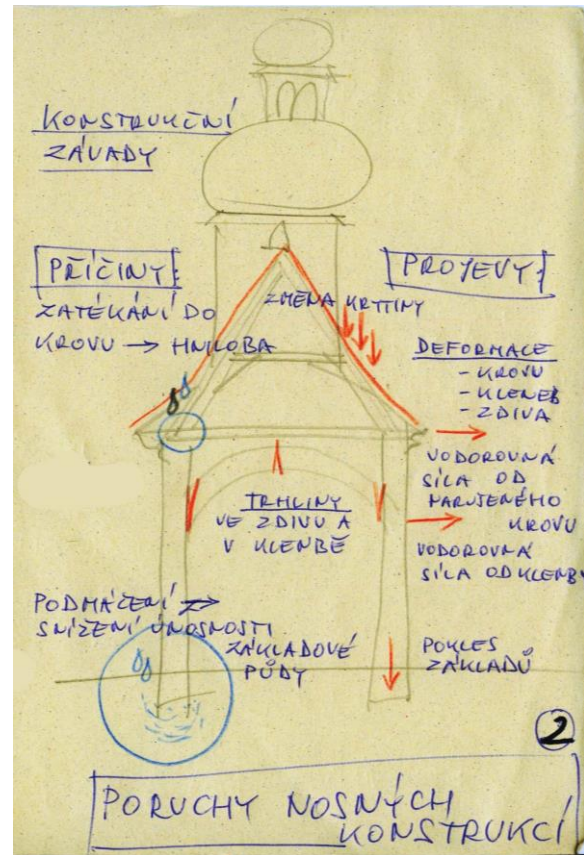 KONSTRUKČNÍ
ZÁVADY
PŘÍČINY:
ZATÉKÁNÍ DO
KROVU → HNILOBA
ZMĚNA KRYTINY
PROJEVY:
DEFORMACE
- KROVU
- KLENEB
- ZDIVA
VODOROVNÁ
SÍLA OD
NARUŠENÉHO
KROVU
TRHLINY
VE ZDIVU A
V KLENBĚ
VODOROVNÁ
SÍLA OD KLENBY
PODMÁČENÍ →
SNÍŽENÍ ÚNOSNOSTI
ZÁKLADOVÉ
PŮDY
POKLES
ZÁKLADŮ
2
PORUCHY NOSNÝCH
KONSTRUKCÍ